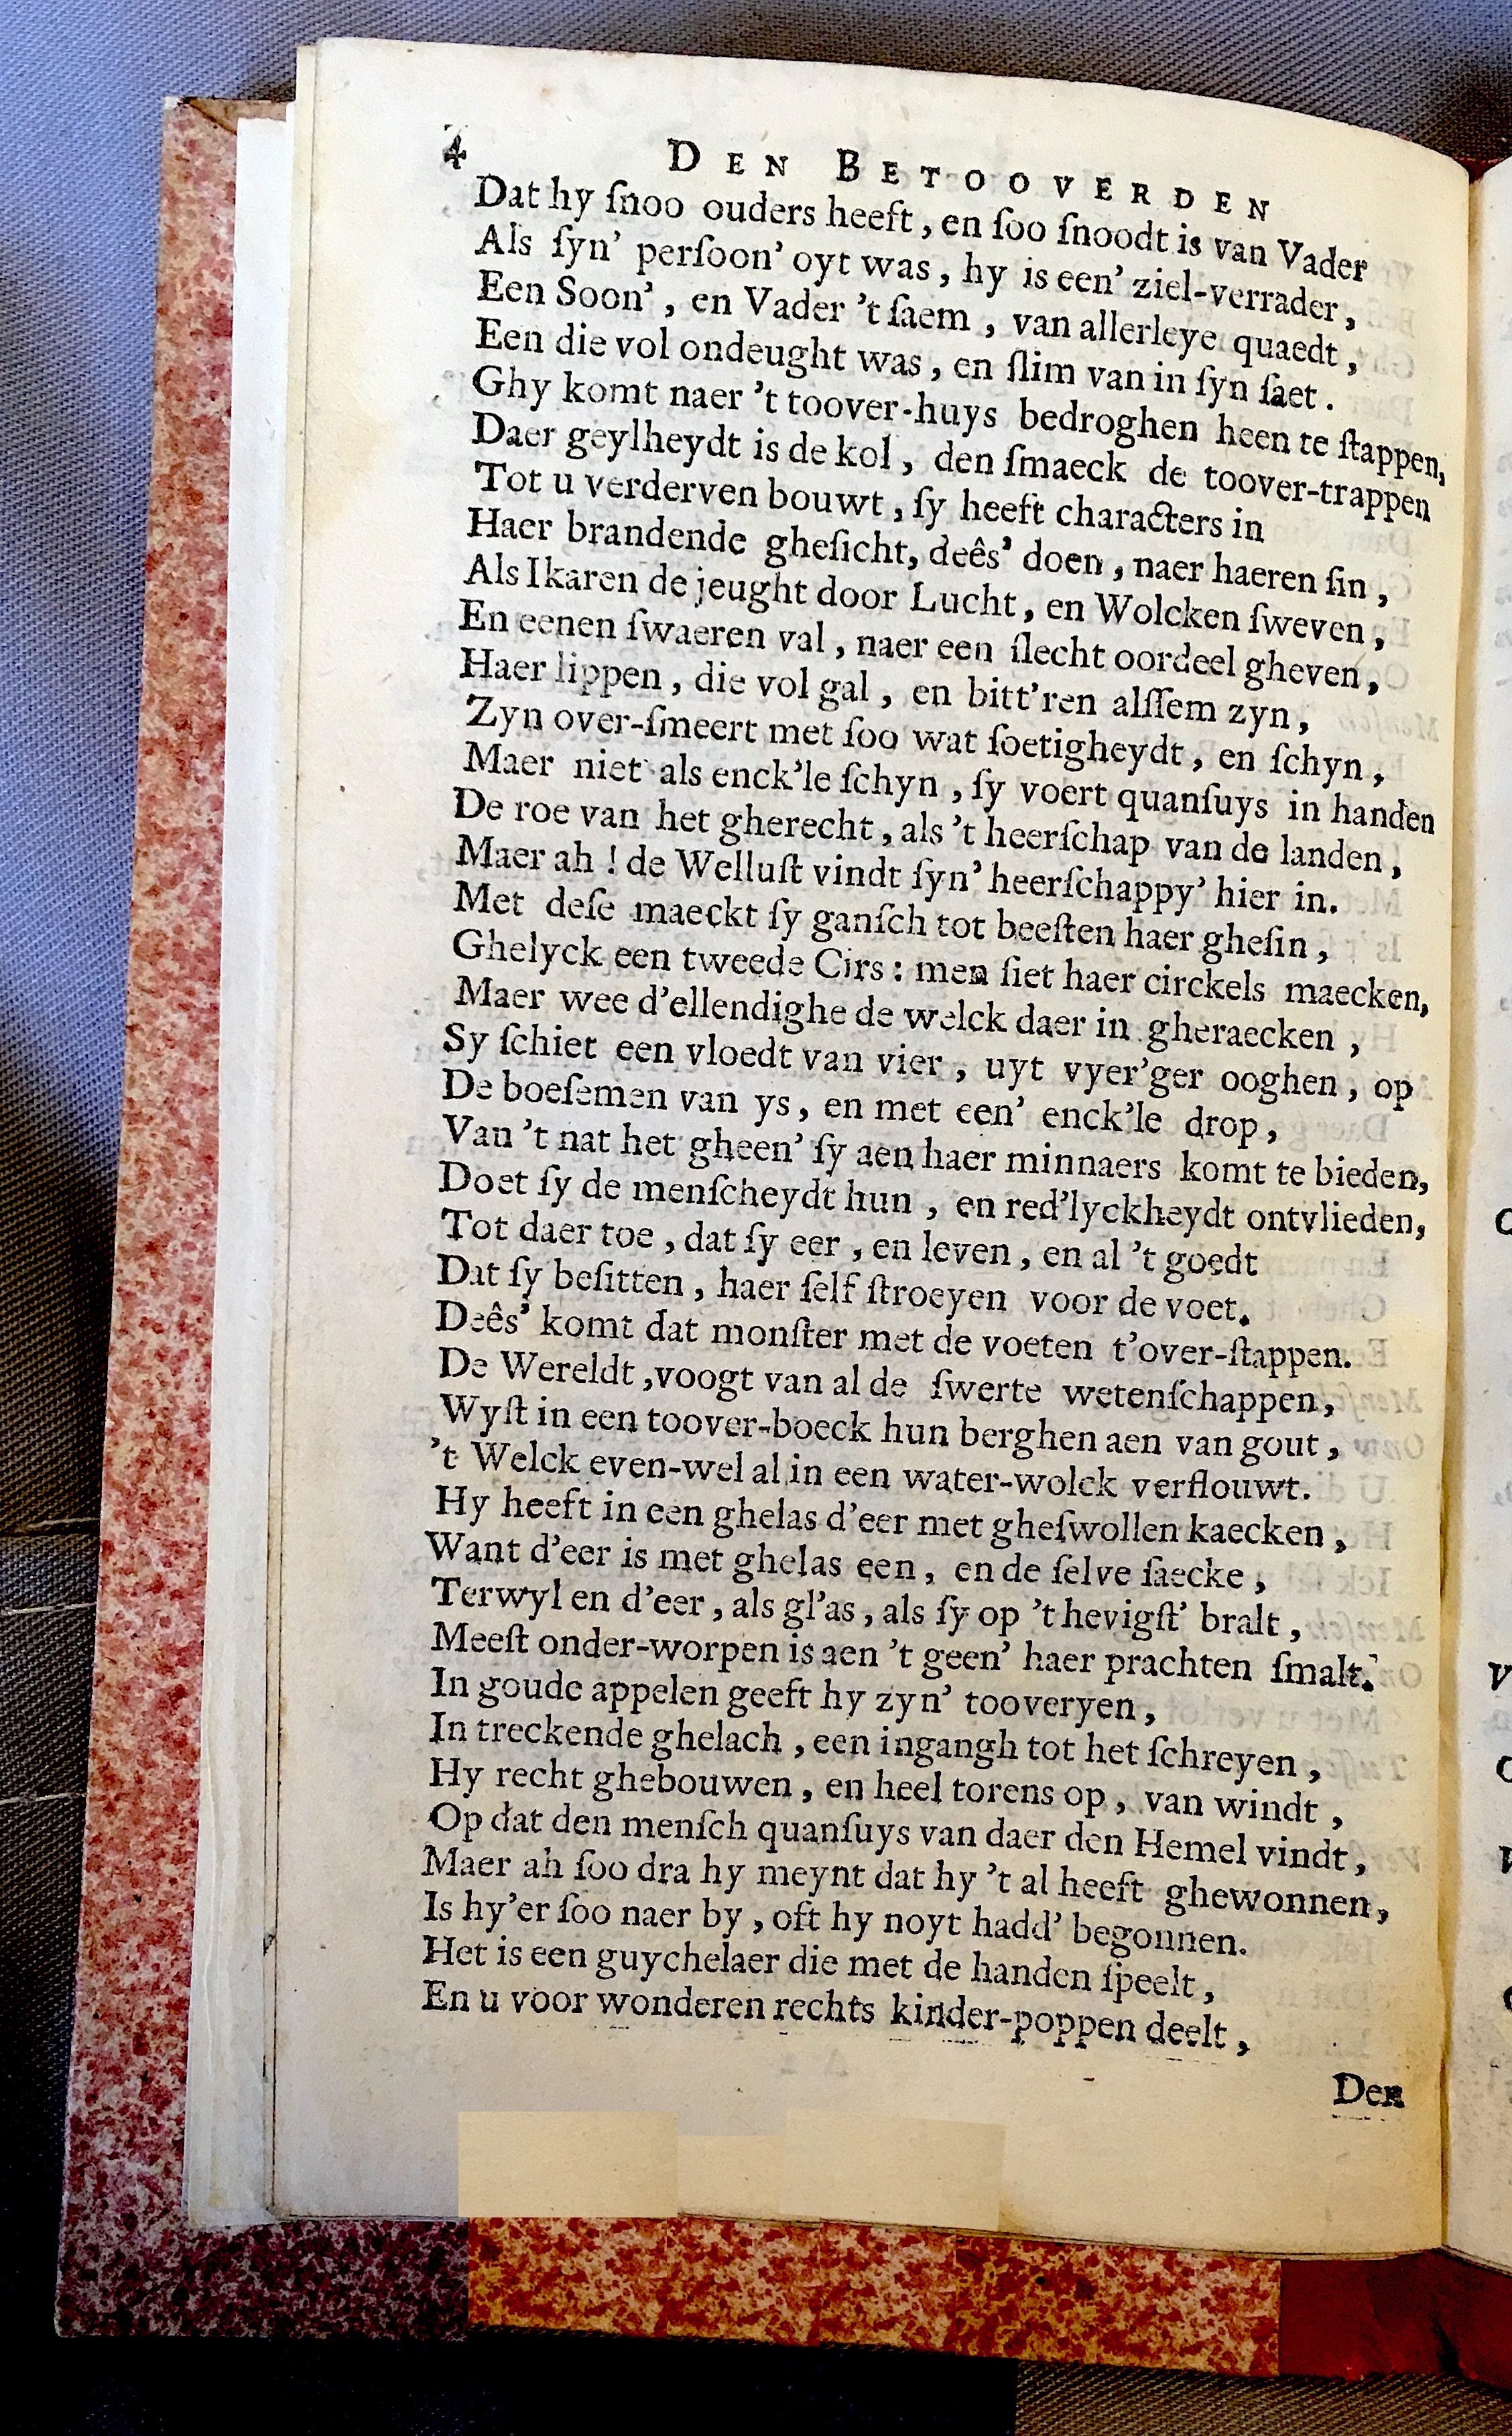 4 DEN BETOOVERDEN
Dat hy ſnoo ouders heeft, en ſoo ſnoodt is van Vader
Als ſyn' perſoon' oyt was, hy is een' ziel-verrader,
Een Soon', en Vader 't ſaem, van allerleye quaedt,
Een die vol ondeught was, en ſlim van in ſyn ſaet.
Ghy komt naer 't toover-huys bedroghen heen te ſtappen,
Daer geylheydt is de kol, den ſmaeck de toover-trappen
Tot u verderven bouwt, ſy heeft characters in
Haer brandende gheſicht, deês' doen, naer haeren ſin,
Als Ikaren de jeught door Lucht, en Wolcken ſweven,
En eenen ſwaeren val, naer een ſlecht oordeel gheven,
Haer lippen, die vol gal, en bitt'ren alſſem zyn,
Zyn over-ſmeert met ſoo wat ſoetigheydt, en ſchyn,
Maer niet als enck'le ſchyn, ſy voert quanſuys in handen
De roe van het gherecht, als 't heerſchap van de landen,
Maer ah! de Welluſt vindt ſyn' heerſchappy' hier in.
Met deſe maeckt ſy ganſch tot beeſten haer gheſin,
Ghelyck een tweede Cirs: men ſiet haer circkels maecken,
Maer wee d'ellendighe de welck daer in gheraecken,
Sy ſchiet een vloedt van vier, uyt vyer'ger ooghen, op
De boeſemen van ys, en met een' enck'le drop,
Van 't nat het gheen' ſy aen haer minnaers komt te bieden,
Doet ſy de menſcheydt hun, en red'lyckheydt ontvlieden,
Tot daer toe, dat ſy eer, en leven, en al 't goedt
Dat ſy beſitten, haer ſelf ſtroeyen voor de voet.
Deês' komt dat monſter met de voeten t'over-ſtappen.
De Wereldt, voogt van al de ſwerte wetenſchappen,
Wyſt in een toover-boeck hun berghen aen van gout,
't Welck even-wel al in een water-wolck verflouwt.
Hy heeft in een ghelas d'eer met gheſwollen kaecken,
Want d'eer is met ghelas een, en de ſelve ſaecke,
Terwyl en d'eer, als gl'as, als ſy op 't hevigſt' bralt,
Meeſt onder-worpen is aen 't geen' haer prachten ſmalt.
In goude appelen geeft hy zyn' tooveryen,
In treckende ghelach, een ingangh tot het ſchreyen,
Hy recht ghebouwen, en heel torens op, van windt,
Op dat den menſch quanſuys van daer den Hemel vindt,
Maer ah ſoo dra hy meynt dat hy 't al heeft ghewonnen,
Is hy'er ſoo naer by, oft hy noyt hadd' begonnen.
Het is een guychelaer die met de handen ſpeelt,
En u voor wonderen rechts kinder-poppen deelt,
Den